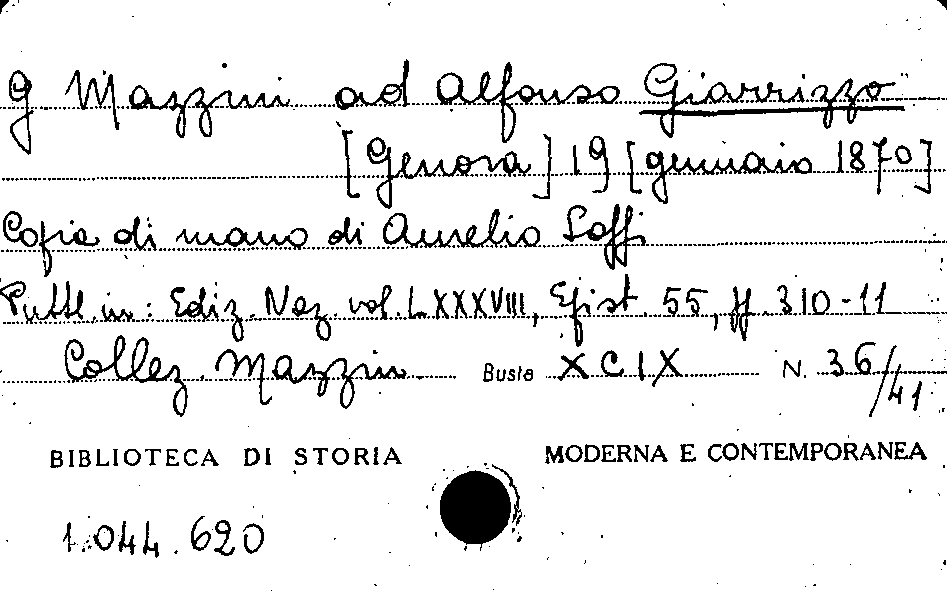 G Mazzini ad Alfonso Giarrizzo
[Genova] 19 [gennaio 1870]
Copia di mano di Aurelio Saffi
Pubbl. in: Ediz. Naz. vol. LXXXVIII, Epist. 55, pp. 310-11
Collez. Mazzini Busta XCIX N. 36/41
BIBLIOTECA DI STORIA MODERNA E CONTEMPORANEA
1.044.620